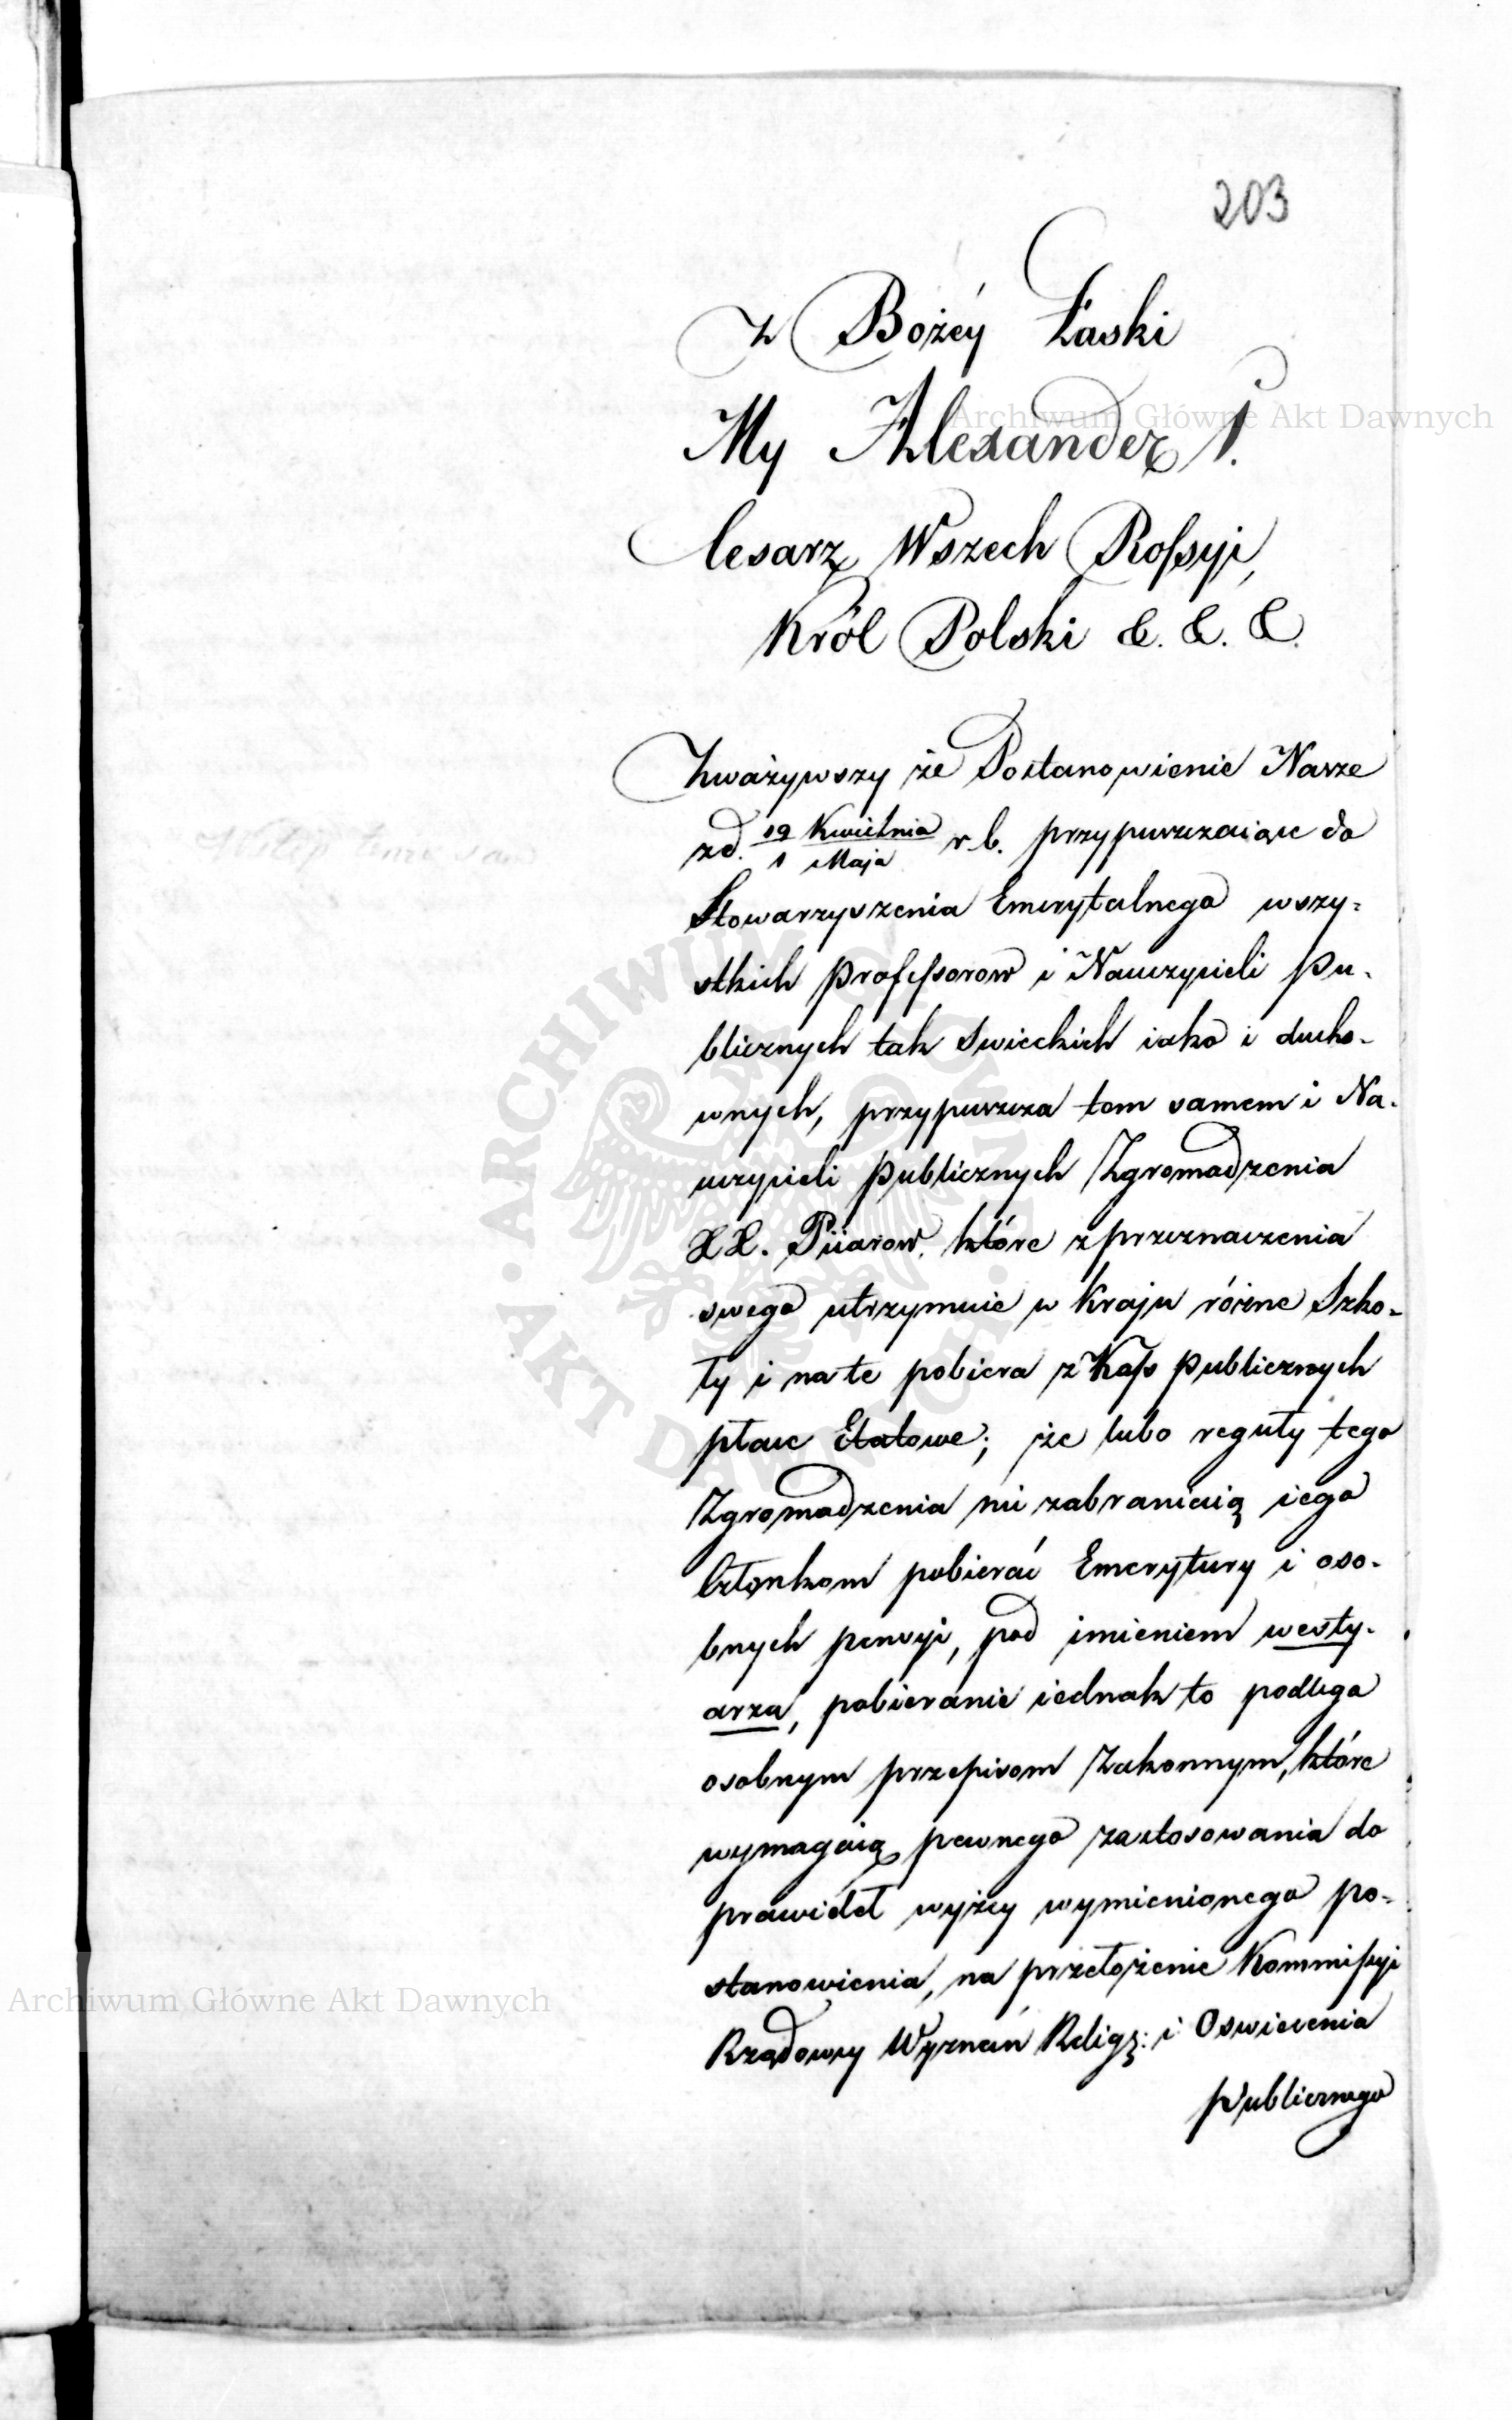 203
Z Bożéy Łaski
My Alexander I.
Cesarz Wszech Rossyi,
Król Polski &. &. &.
Zważywszy że Postanowienie Nasze
z d. 19 Kwietnia / 1 Maja r. b. przypuszczaiąc do
Stowarzyszenia Emerytalnego wszy-
stkich Professorow i Nauczycieli Pu-
blicznych tak Swieckich iako i ducho-
wnych, przypuszcza tem samem i Na-
uczycieli Publicznych Zgromadzenia
XX. Piiarow, które z przeznaczenia
swego utrzymuie w Kraju różne Szko-
ły i na te pobiera z Kass Publicznych
płace Etatowe; że lubo reguły tego
Zgromadzenia nie zabraniaią iego
Członkom pobierać Emerytury i oso-
bnych pensyi, pod imieniem westy-
arza, pobieranie iednak to podlega
osobnym przepisom Zakonnym, które
wymagaią pewnego zastosowania do
prawideł wyżey wymienionego po-
stanowienia, na przełożenie Kommissyi
Rządowey Wyznań Relig: i Oswiecenia
Publicznego
Archiwum Główne Akt Dawnych
Archiwum Główne Akt Dawnych
ARCHIWUM GŁÓWNE AKT DAWNYCH